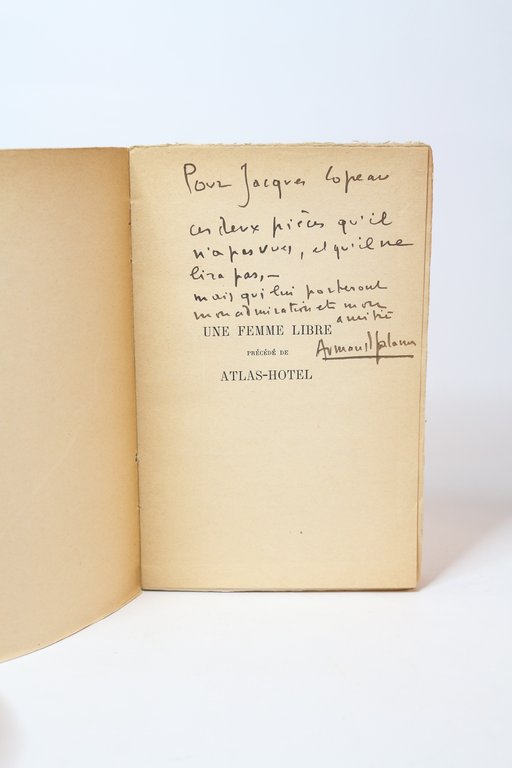 Pour Jacques Copeau
ces deux pièces qu'il
n'a pas vues, et qu'il ne
lira pas, –
mais qui lui porteront
mon admiration et mon
amitié
UNE FEMME LIBRE
Armand Salacrou
PRÉCÉDÉ DE
ATLAS-HOTEL